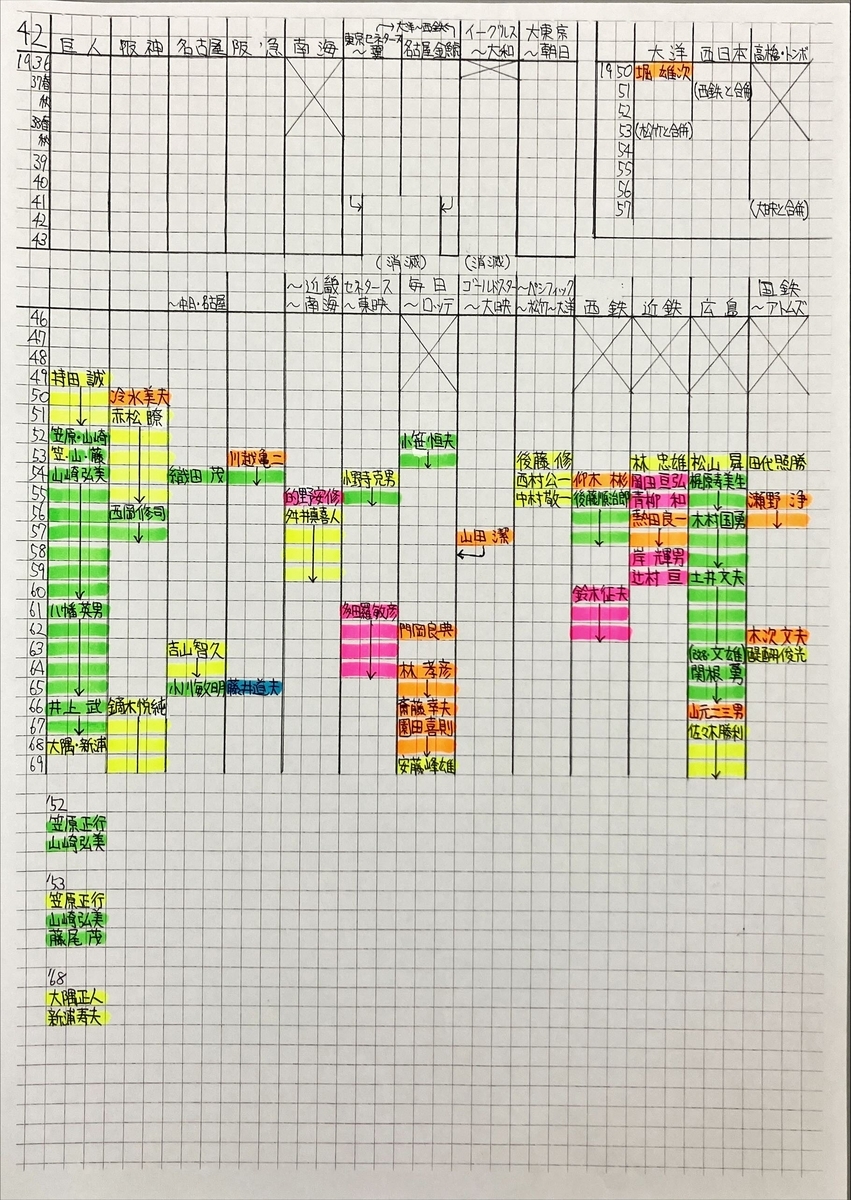 42 巨人 阪神 名古屋 阪・急 南海 東京セネタース ～翼 →大洋～西鉄 名古屋金鯱 イーグルス ～大和 大東京 ～朝日
1936
37春
秋
38春
秋
39
40
41
42
43
(消滅) (消滅)
大洋 西日本 高橋・トンボ
1950 堀 雄次
51 (西鉄と合併)
52
53 (松竹と合併)
54
55
56
57 (大映と合併)
～中日・名古屋 ～近畿 ～南海 セネタース ～東映 毎日 ～ロッテ ゴールドスター ～大映 ～パシフィック ～松竹～大洋 西鉄 近鉄 広島 国鉄 ～アトムズ
46
47
48
49 持田 誠
50 冷水美夫
51 赤松 瞭
52 笠原・山崎 小笹恒夫
53 笠・山・藤 川越亀二 後藤 修 林 忠雄 松山 昇 田代照勝
54 山崎弘美 織田 茂 小野寺克男 西村公一 仰木 彬 岡田亘弘 梶原寿美生
55 的野安修 中村敬一 後藤順治郎 青柳 和 瀬野 浄
56 西岡修司 舛井真喜人 熱田良一 木村国勇
57 山田 潔
58 岸 輝男
59 辻村 亘 土井文夫
60 鈴木征夫
61 八幡英男 多田羅敏彦
62 門岡良典 木次文夫
63 吉山智久 文雄 醍醐俊光
64 林 孝彦 関根 勇
65 小川敏明 藤井道夫
66 井上 武 鏑木悦純 斎藤幸夫 山元二三男
67 園田喜則 佐々木勝利
68 大隅・新浦
69 安藤峰雄
'52
笠原正行
山崎弘美
'53
笠原正行
山崎弘美
藤尾 茂
'68
大隅正人
新浦寿夫